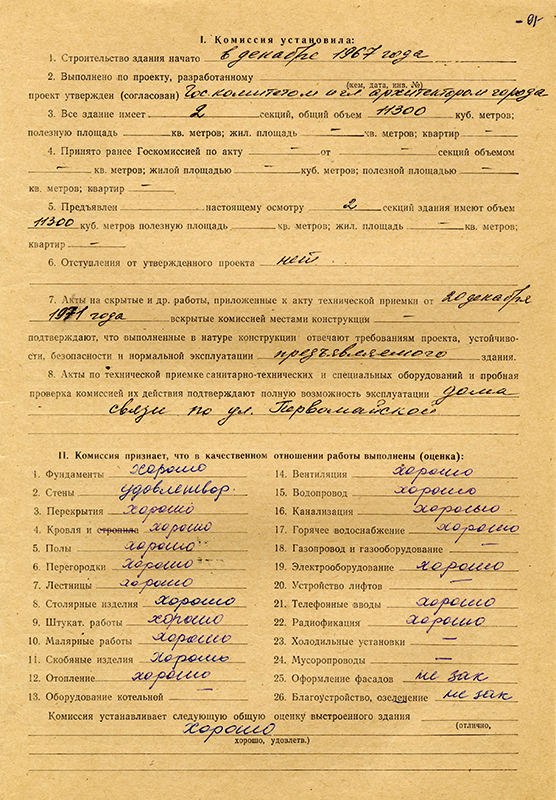 I. Комиссия установила:
1. Строительство здания начато в декабре 1967 года
2. Выполнено по проекту, разработанному
(кем, дата, инв. №)
проект утвержден (согласован) Госкомитетом и гл. архитектором города
3. Все здание имеет 2 секций, общий объем 11300 куб. метров;
полезную площадь — кв. метров; жил. площадь — кв. метров; квартир —
4. Принято ранее Госкомиссией по акту — от — секций объемом
— кв. метров; жилой площадью — куб. метров; полезной площадью —
кв. метров; квартир —
5. Предъявлен настоящему осмотру 2 секций здания имеют объем
11300 куб. метров полезную площадь — кв. метров; жил. площадь — кв. метров;
квартир —
6. Отступления от утвержденного проекта нет.
7. Акты на скрытые и др. работы, приложенные к акту технической приемки от 20 декабря
1971 года вскрытые комиссией местами конструкции —
подтверждают, что выполненные в натуре конструкции отвечают требованиям проекта, устойчиво-
сти, безопасности и нормальной эксплуатации предъявляемого здания.
8. Акты по технической приемке санитарно-технических и специальных оборудований и пробная
проверка комиссией их действия подтверждают полную возможность эксплуатации дома
связи по ул. Первомайской
II. Комиссия признает, что в качественном отношении работы выполнены (оценка):
1. Фундаменты хорошо
2. Стены удовлетвор.
3. Перекрытия хорошо
4. Кровля и стропила хорошо
5. Полы хорошо
6. Перегородки хорошо
7. Лестницы хорошо
8. Столярные изделия хорошо
9. Штукат. работы хорошо
10. Малярные работы хорошо
11. Скобяные изделия хорошо
12. Отопление хорошо
13. Оборудование котельной —
14. Вентиляция хорошо
15. Водопровод хорошо
16. Канализация хорошо
17. Горячее водоснабжение хорошо
18. Газопровод и газооборудование —
19. Электрооборудование хорошо
20. Устройство лифтов —
21. Телефонные вводы хорошо
22. Радиофикация хорошо
23. Холодильные установки —
24. Мусоропроводы —
25. Оформление фасадов не зак
26. Благоустройство, озеленение не зак
Комиссия устанавливает следующую общую оценку выстроенного здания
(отлично,
хорошо
хорошо, удовлетв.)